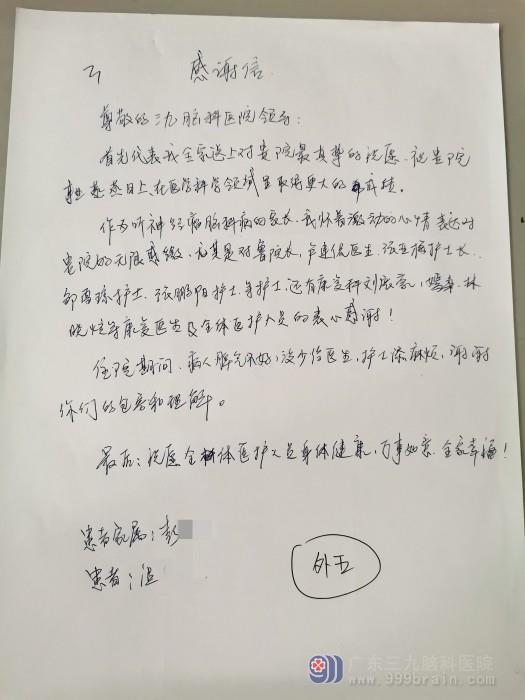 感谢信
尊敬的三九脑科医院领导:
首先代表我全家送上对贵院最真挚的祝愿、祝贵院
事业蒸蒸日上、在医学科学领域里取得更大的成绩。
作为听神经瘤脑科病的家长,我怀着激动的心情表达对
贵院的无限感激,尤其是对鲁院长、卢建侃医生、张亚楠护士长、
邹雨珍护士、张鹏阳护士等护士,还有康复科刘、林
晓等康复医生及全体医护人员的衷心感谢!
住院期间、病人脾气不好,没少给医生,护士添麻烦,谢谢
你们的包容和理解。
最后:祝愿全科体医护人员身体健康,万事如意、全家幸福!
患者家属:彭
患者:温
外五
广东三九脑科医院
www.999brain.com